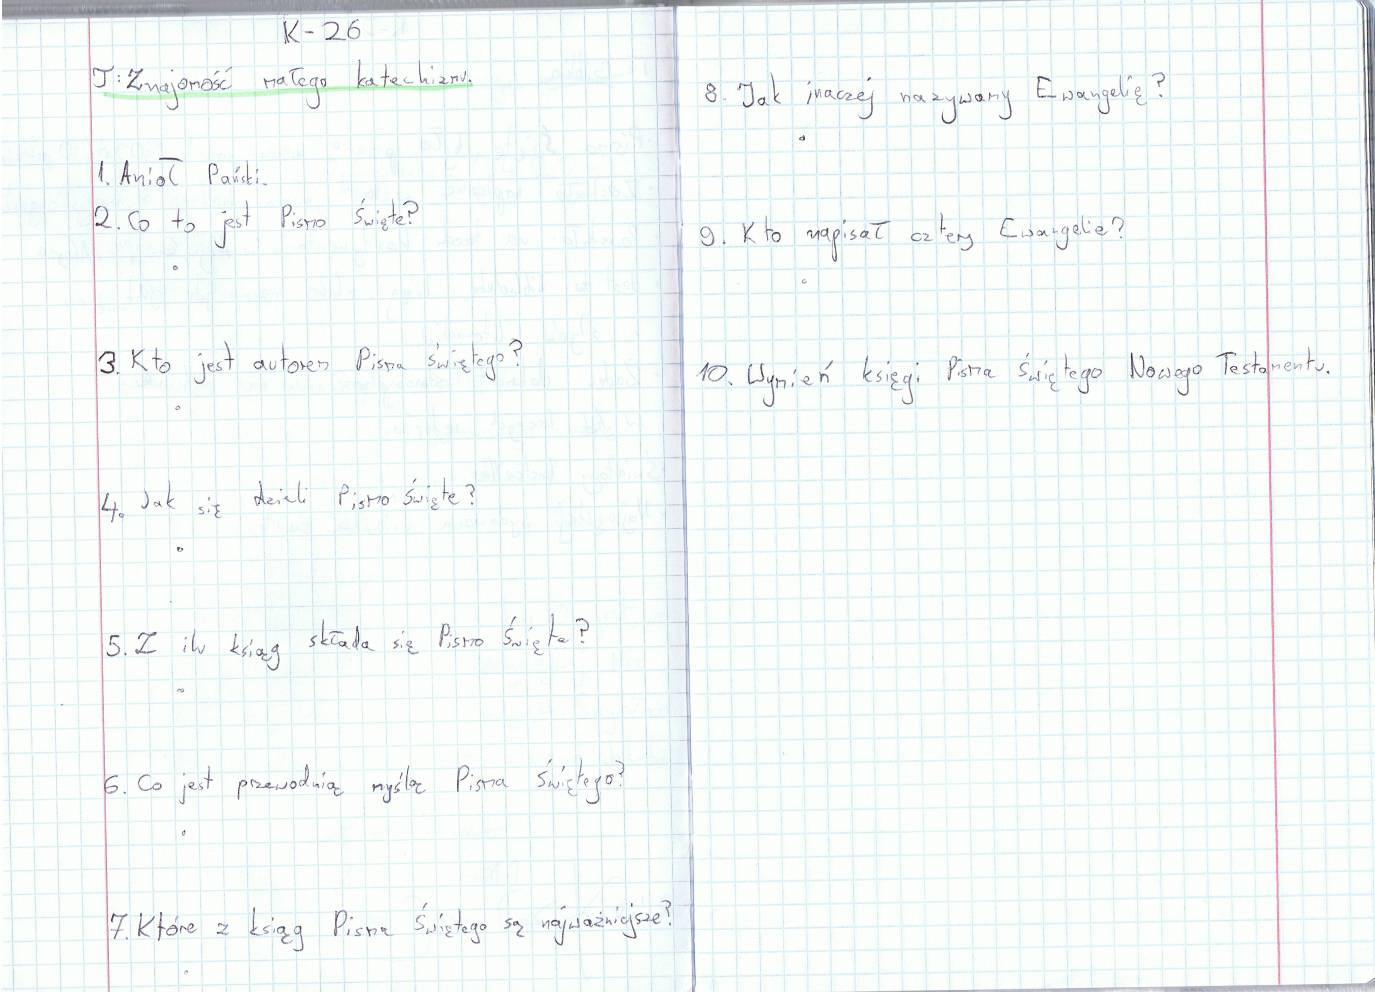 K-26
T: Znajomość małego katechizmu.
1. Anioł Pański.
2. Co to jest Pismo Święte?
3. Kto jest autorem Pisma Świętego?
4. Jak się dzieli Pismo Święte?
5. Z ilu ksiąg składa się Pismo Święte?
6. Co jest przewodnią myślą Pisma Świętego?
7. Które z ksiąg Pisma Świętego są najważniejsze?
8. Jak inaczej nazywamy Ewangelię?
9. Kto napisał cztery Ewangelie?
10. Wymień księgi Pisma Świętego Nowego Testamentu.